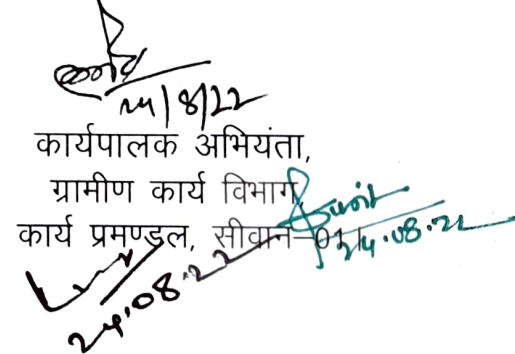 24/8/22
कार्यपालक अभियंता,
ग्रामीण कार्य विभाग,
कार्य प्रमण्डल, सीवान-01
24.08.22
24.08.22